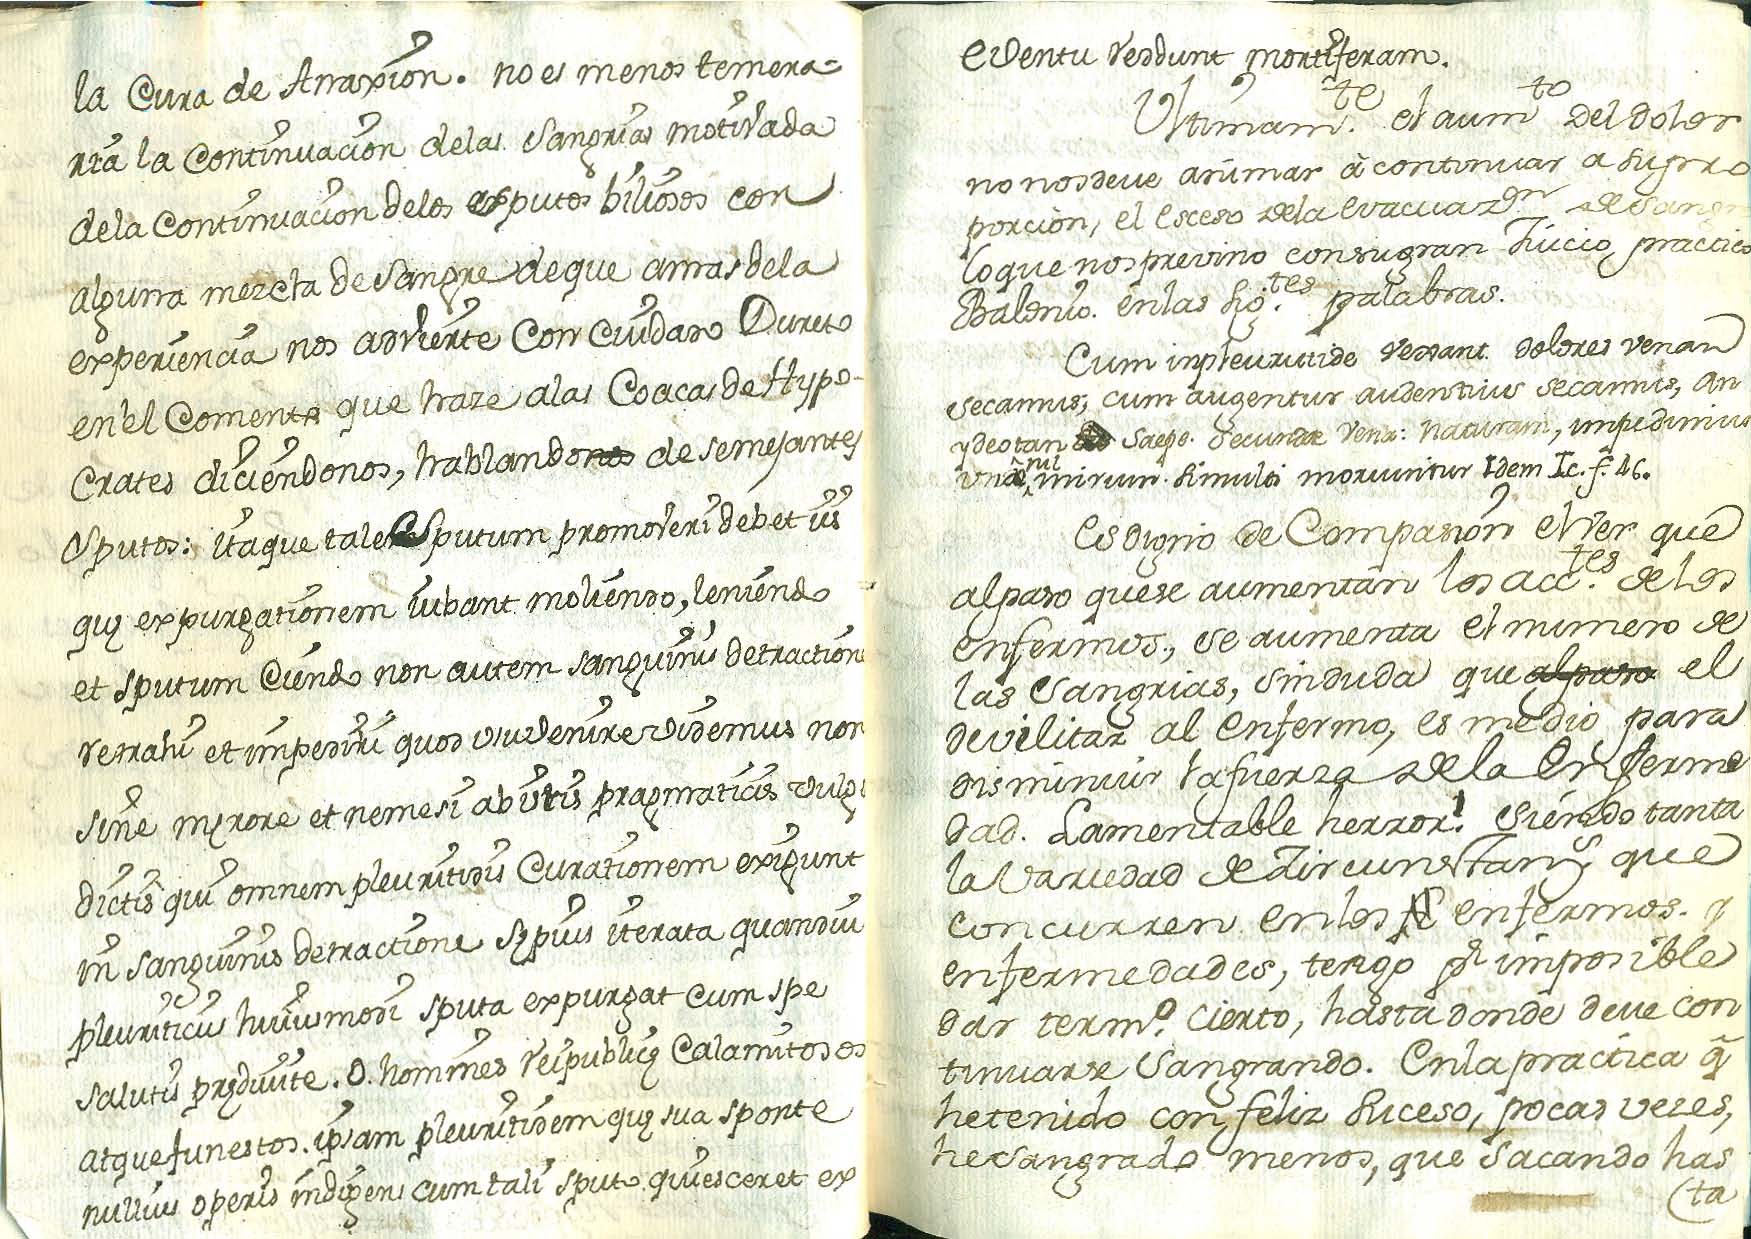 la Cura de Anaxion. no es menos temera=
ria la Continuacion delas Sangrias motivada
dela Continuacion delos esputos biliosos con
alguna mezcla de Sangre de que amas dela
experiencia nos advierte Con Cuidado Dureto
en'el Coments que haze alas Coacas de Hypo-
Crates diciendonos, hablando de semejantes
Sputos: itaque tale Sputum promoveri debet iis
quę expurgationem iubant moliendo, leniendo
et sputum Ciendo non autem sanguinis detractione
retrahi et impediri quod usu venire videmus non
sine męrore et nemesi abutis pragmaticis vulgo
dictis qui omnem pleuritidis Curationem exigunt
in sanguinis detractione sępius iterata quandiu
pleuriticus huiusmodi sputa expurgat Cum spe
salutis pręditute. O. homines reipublicę Calamitosos
atque funestos. ipsam pleuritidem quę sua sponte
nullius operis indigens cum tali sputo quiesceret ex
eventu reddunt mortiferam.
Ultimam.te el aum.to del dolor
no nos deve animar ā continuar a su pro
porcion, el Esceso de la evacuaz.on de Sangre
lo que nos previno con su gran Juicio practico
Balonio. en las sig.tes palabras.
Cum in pleuritide versant dolores venam
secamus, cum augentur audentius secamus, an
q ideo tan Saepe. Secundæ venæ: naturam, impedimus
una nil mirum simulti moriuntur Idem Ic. f. 46.
Es digno de Compasion el ver que
alpaso que se aumentan los acc.tes de los
enfermos, se aumenta el numero de
las Sangrias, sin duda que alpaso el
devilitar al enfermo, es medio para
disminuir la fuerza de la Enferme
dad. Lamentable herror! Siendo tanta
la Variedad de Zircunstan.s que
concurren en los enfermos. y
enfermedades, tengo p.r imposible
dar term.o cierto, hasta donde deve con
tinuarse Sangrando. En la practica q̃
he tenido con feliz suceso, pocas vezes,
he Sangrado menos, que Sacando has
(ta